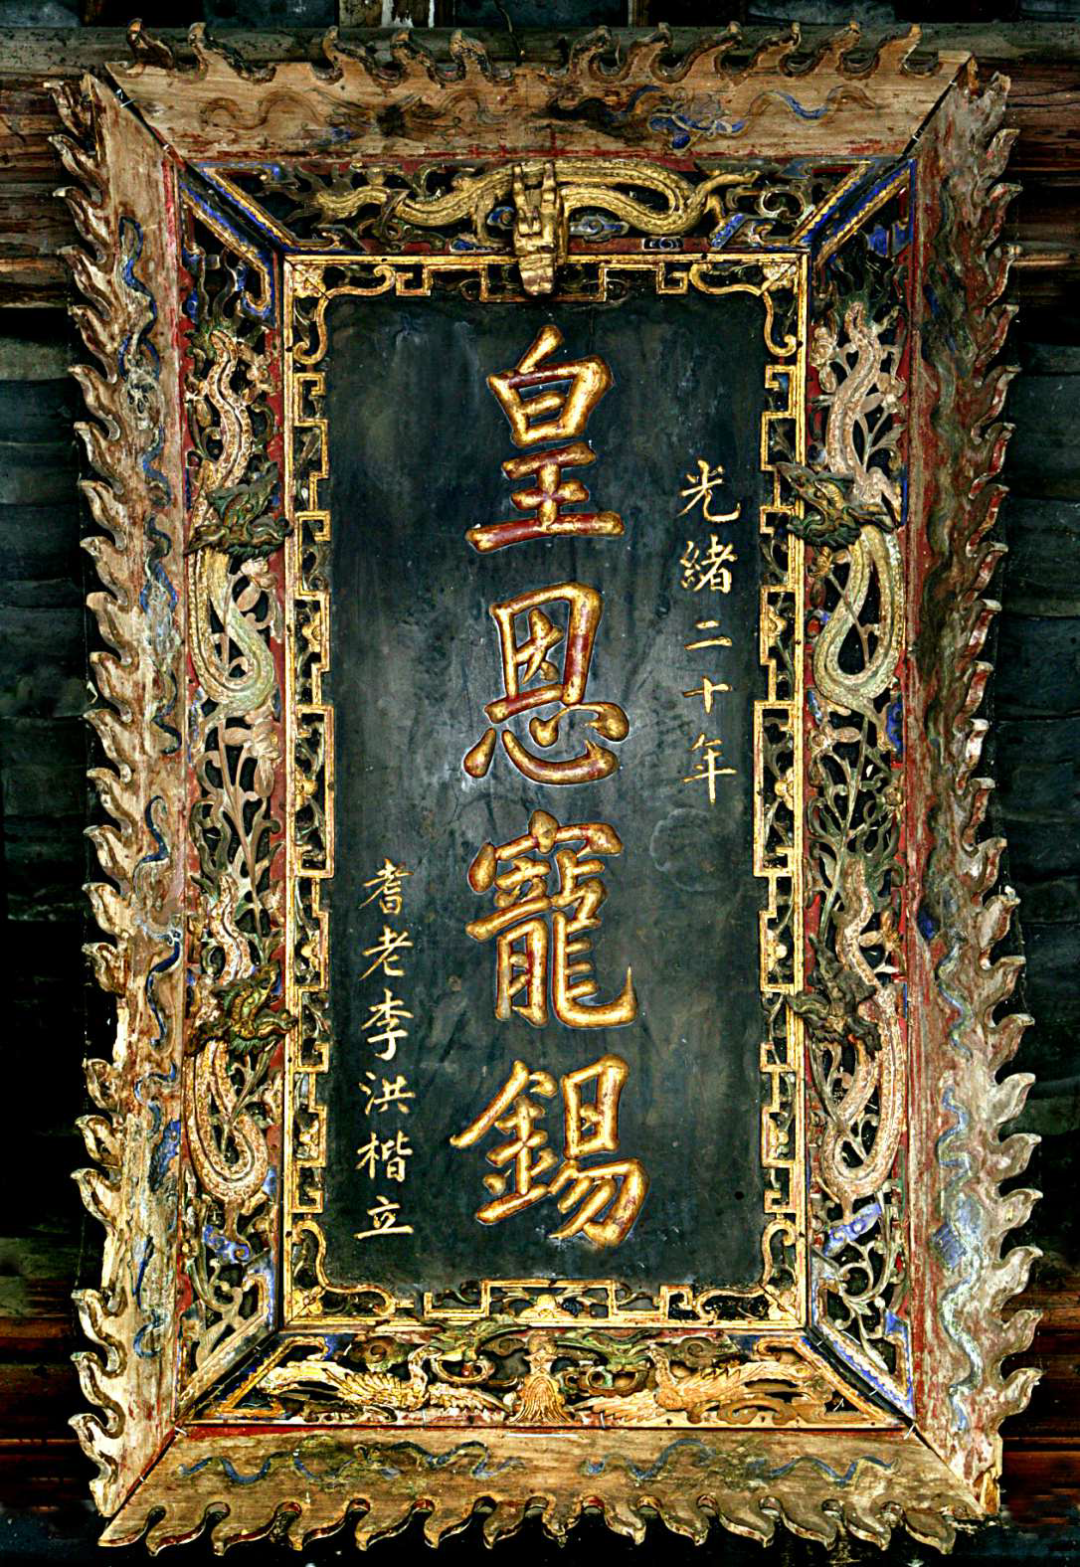 光緒二十年
皇恩寵錫
耆老李洪楷立